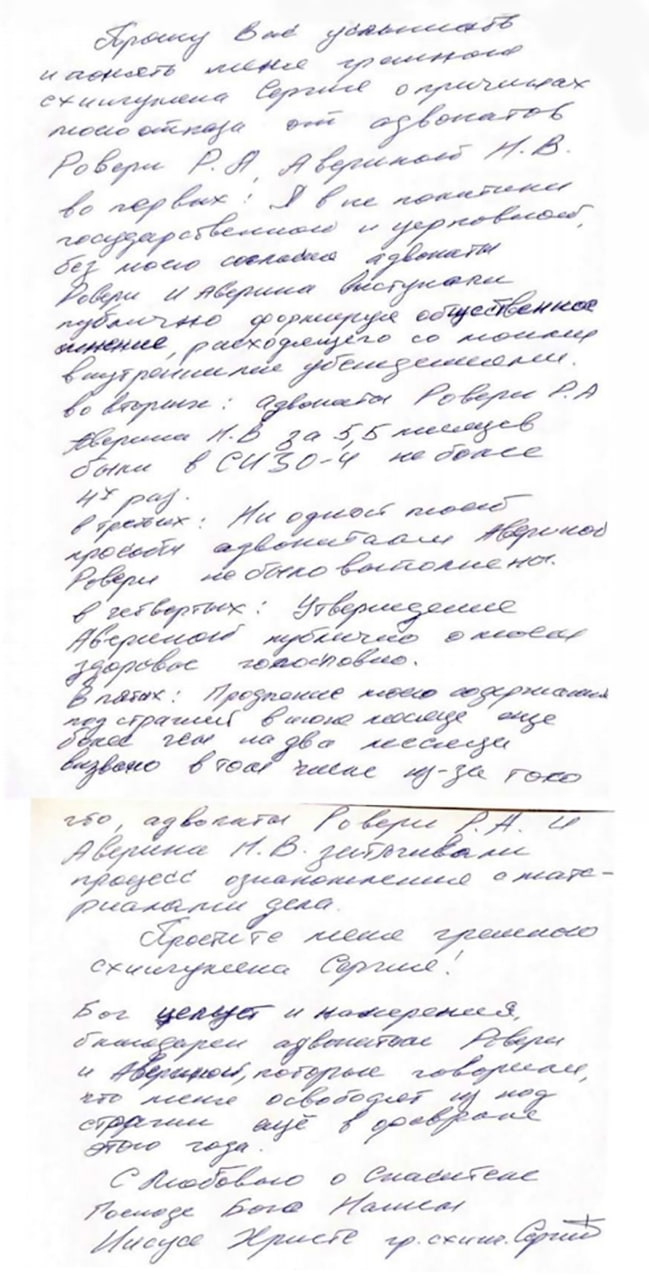 Прошу Вас услышать
и понять меня грешного
схиигумена Сергия о причинах
моего отказа от адвокатов
Ровери Р.А, Авериной Н.В.
во первых: Я в не политики
государственной и церковной,
без моего согласия адвокаты
Ровери и Аверина выступали
публично формируя общественное
мнение, расходящего со моими
внутренними убеждениями.
во вторых: адвокаты Ровери Р.А
Аверина Н.В за 5,5 месяцев
были в СИЗО-4 не более
4х раз.
в третих: Ни одной моей
просьбы адвокатами Авериной
Ровери не было выполнены.
в четвертых: Утверждение
Авериной публично о моем
здоровье голословно.
В пятых: Продление моего содержания
под стражей в июне месяце еще
более чем на два месяца
вызвано в том числе из-за того
что, адвокаты Ровери Р.А. и
Аверина Н.В. затягивали
процесс ознакомления с мате-
риалами дела.
Простите меня грешного
схиигумена Сергия!
Бог целует и намерения,
благодарен адвокатам Ровери
и Авериной, которые говорили,
что меня освободят из под
стражи ещё в феврале
этого года.
С Любовью о Спасителе
Господе Боге Нашем
Иисусе Христе гр. схииг. Сергий